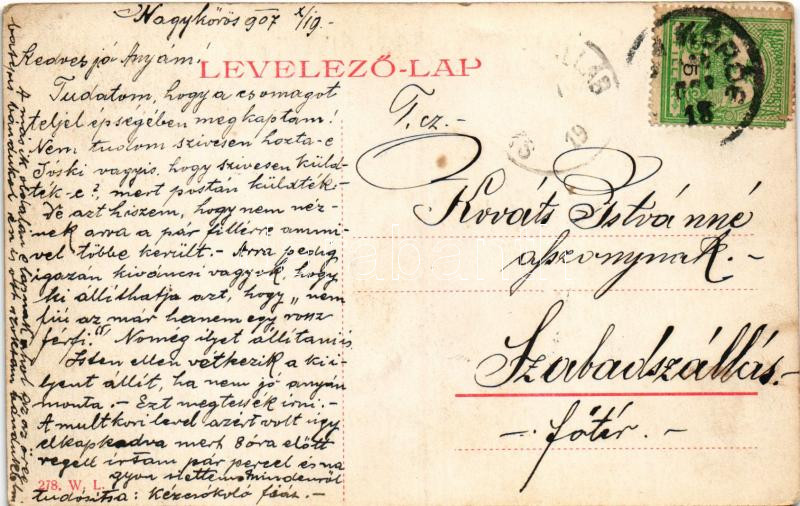 Nagykőrös 907 X/19.-
Kedves jó Anyám!
LEVELEZŐ-LAP
Tudatom, hogy a csomagot
teljes épségében megkaptam!
Nem tudom szivesen hozta-e
Jóski vagyis, hogy szivesen küld-
ték-e?, mert postán küldték.-
De azt hiszem, hogy nem néz-
nek arra a pár fillérre ammi-
vel többe került.- Arra pedig
igazán kiváncsi vagyok, hogy
ki állíthatja azt, hogy „nem
fiú az már hanem egy rossz
férfi." No még ilyet állítani is
Isten ellen vétkezik a ki i-
lyent állít, ha nem jó anyám
monta. - Ezt megtessék irni.-
A multkori level azért volt úgy
elkapkadva mert 8 óra előtt
irtam pár percel es na
gyon siettem mindenről
tudósitsa: Kézcsókoló fiás.-
A másik oldalán
278. W. L.
T. cz.-
Kováts Istvánné
asszonynak.-
Szabadszállás.-
-. főtér. -
KŐRÖS
18
19